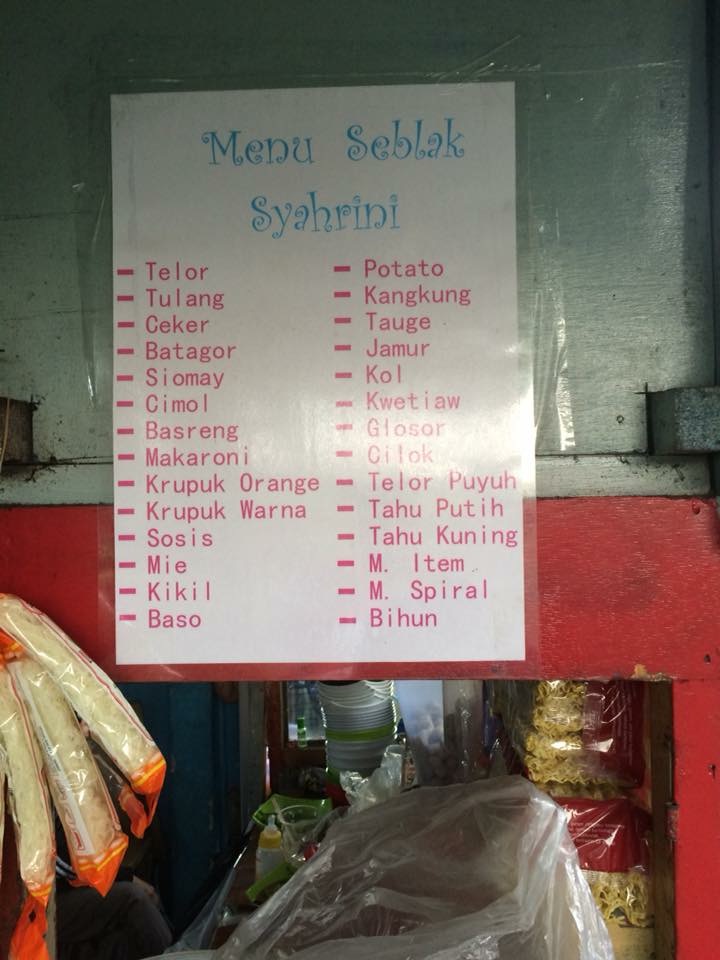 Menu Seblak
Syahrini
- Telor
- Tulang
- Ceker
- Batagor
- Siomay
- Cimol
- Basreng
- Makaroni
- Krupuk Orange
- Krupuk Warna
- Sosis
- Mie
- Kikil
- Baso
- Potato
- Kangkung
- Tauge
- Jamur
- Kol
- Kwetiaw
- Glosor
- Cilok
- Telor Puyuh
- Tahu Putih
- Tahu Kuning
- M. Item
- M. Spiral
- Bihun